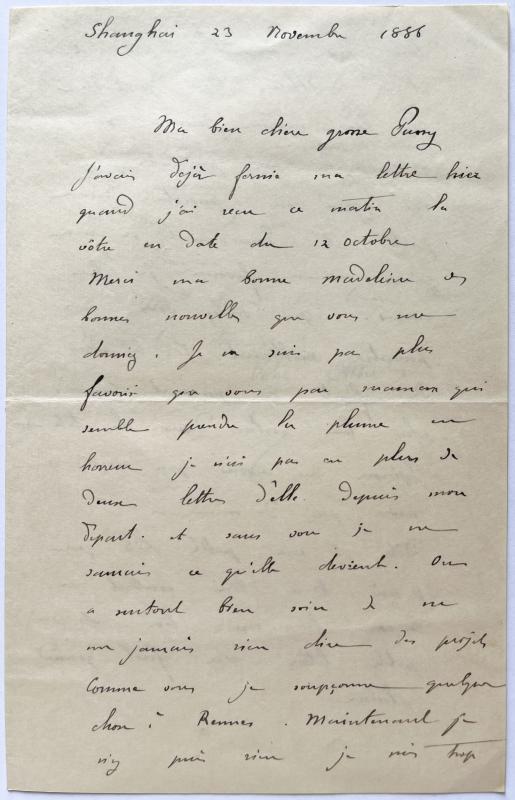 Shanghai 23 Novembre 1886
Ma bien chère grosse Pussy
J'avais déjà fermé ma lettre hier
quand j'ai reçu ce matin la
vôtre en date du 12 octobre
Merci ma bonne Madeleine des
bonnes nouvelles que vous me
donniez. Je ne suis pas plus
favorisé que vous par maman qui
semble prendre la plume en
horreur je n'ai pas eu plus de
deux lettres d'elle depuis mon
départ. et sans vous je ne
saurais ce qu'elle devient. On
a surtout bien soin de ne
me jamais rien dire des projets
Comme vous je soupçonne quelque
chose à Rennes. Maintenant je
n'y puis rien je suis trop